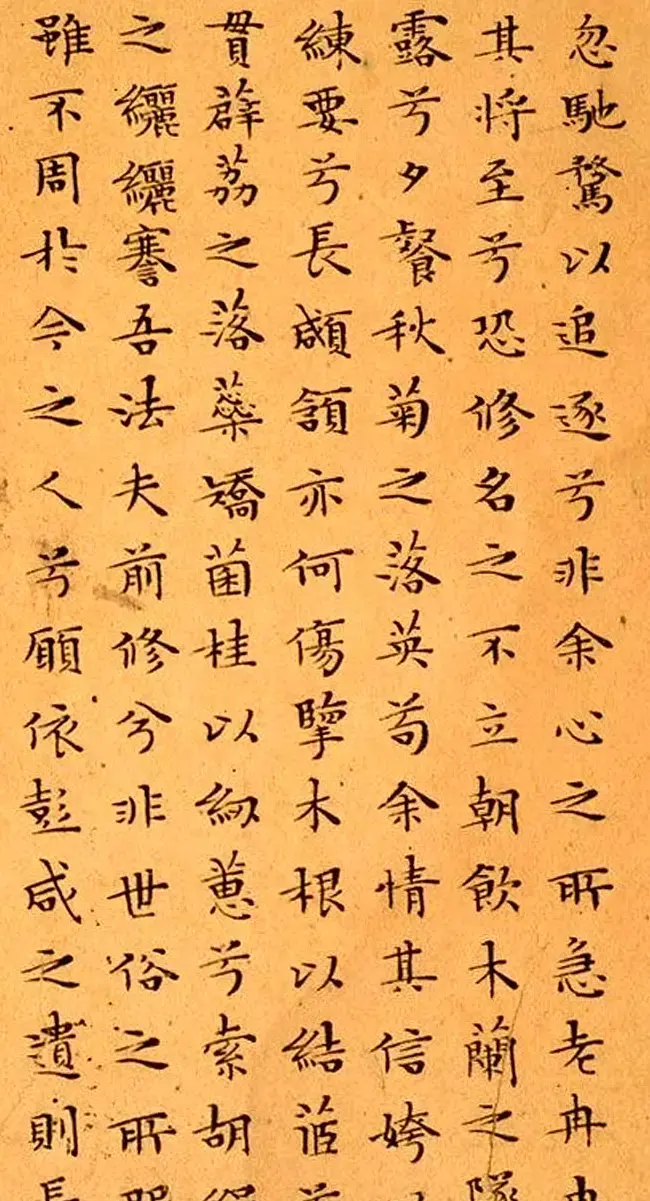 忽馳騖以追逐兮非余心之所急老冉
其將至兮恐修名之不立朝飲木蘭之
露兮夕餐秋菊之落英苟余情其信姱
練要兮長顑頷亦何傷擥木根以結茝
貫薜荔之落蘂矯菌桂以紉蕙兮索胡
之纚纚謇吾法夫前修兮非世俗之所
雖不周於今之人兮願依彭咸之遺則長